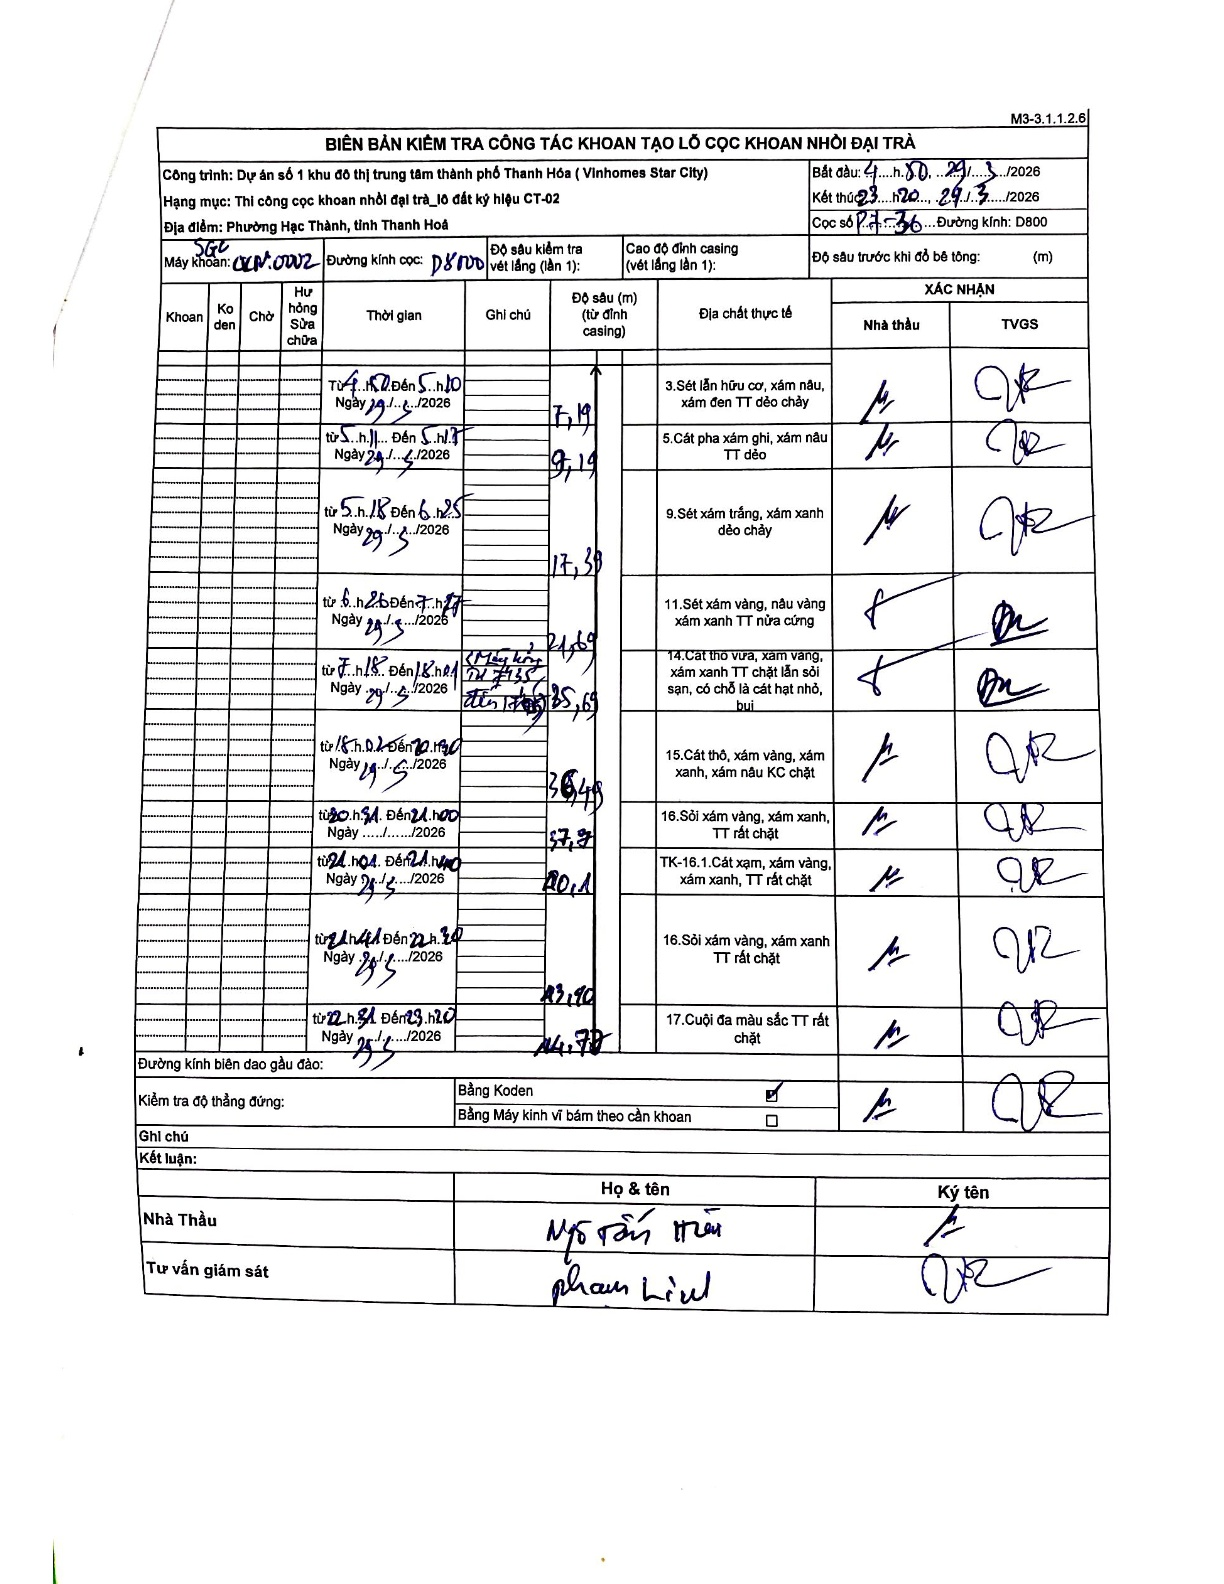 M3-3.1.1.2.6
BIÊN BẢN KIỂM TRA CÔNG TÁC KHOAN TẠO LỖ CỌC KHOAN NHỒI ĐẠI TRÀ
Công trình: Dự án số 1 khu đô thị trung tâm thành phố Thanh Hóa ( Vinhomes Star City)
Hạng mục: Thi công cọc khoan nhồi đại trà_lô đất ký hiệu CT-02
Địa điểm: Phường Hạc Thành, tỉnh Thanh Hoá
Bắt đầu: 4....h.50, ..29./...3.../2026
Kết thúc 23 h20..., .29./.3...../2026
Cọc số P7-36...Đường kính: D800
Máy khoan: SGC
Đường kính cọc: D800
Độ sâu kiểm tra vét lắng (lần 1):
Cao độ đỉnh casing (vét lắng lần 1):
Độ sâu trước khi đổ bê tông: (m)
Khoan
Ko den
Chờ
Hư hỏng Sửa chữa
Thời gian
Ghi chú
Độ sâu (m) (từ đỉnh casing)
Địa chất thực tế
XÁC NHẬN
Nhà thầu
TVGS
Từ 4..h50.Đến 5..h10
Ngày 29./..3.../2026
7,19
3.Sét lẫn hữu cơ, xám nâu,
xám đen TT dẻo chảy
từ 5..h.11... Đến 5..h17
Ngày 29./..3.../2026
9,19
5.Cát pha xám ghi, xám nâu
TT dẻo
từ 5..h.18 Đến 6..h25
Ngày 29./..3.../2026
17,39
9.Sét xám trắng, xám xanh
dẻo chảy
từ 6..h26 Đến 7..h
Ngày 29./.3..../2026
21,69
11.Sét xám vàng, nâu vàng
xám xanh TT nửa cứng
từ 7..h18. Đến 18.h01
Ngày ..29./..3.../2026
(Máy hỏng
Từ 7h35
đến
35,69
14.Cát thô vừa, xám vàng,
xám xanh TT chặt lẫn sỏi
sạn, có chỗ là cát hạt nhỏ,
bụi
từ 18.h.02 Đến 20.h30
Ngày 29./..3.../2026
36,49
15.Cát thô, xám vàng, xám
xanh, xám nâu KC chặt
từ 20.h.31. Đến 21.h00
Ngày ...../....../2026
37,9
16.Sỏi xám vàng, xám xanh,
TT rất chặt
từ 21.h01. Đến 21.h40
Ngày 29./..3.../2026
40,1
TK-16.1.Cát xạm, xám vàng,
xám xanh, TT rất chặt
từ 21h41 Đến 22.h.30
Ngày .29./.3..../2026
43,90
16.Sỏi xám vàng, xám xanh
TT rất chặt
từ 22.h.31 Đến 23.h20
Ngày 29./..3..../2026
17.Cuội đa màu sắc TT rất
chặt
Đường kính biên dao gầu đào:
Kiểm tra độ thẳng đứng:
Bằng Koden
Bằng Máy kinh vĩ bám theo cần khoan
Ghi chú
Kết luận:
Họ & tên
Ký tên
Nhà Thầu
Ngô Tấn
Tư vấn giám sát
Phạm Linh